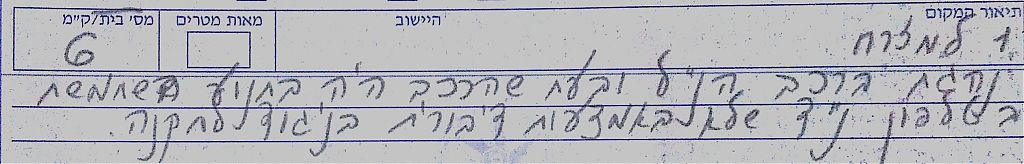 תיאור המקום היישוב מאות מטרים מס' בית/ק"מ
1 למזרח 6
נהגת ברכב הנ"ל ובעת שהרכב היה בתנועה השתמשת
בטלפון נייד שלא באמצעות דיבורית בניגוד לתקנה.